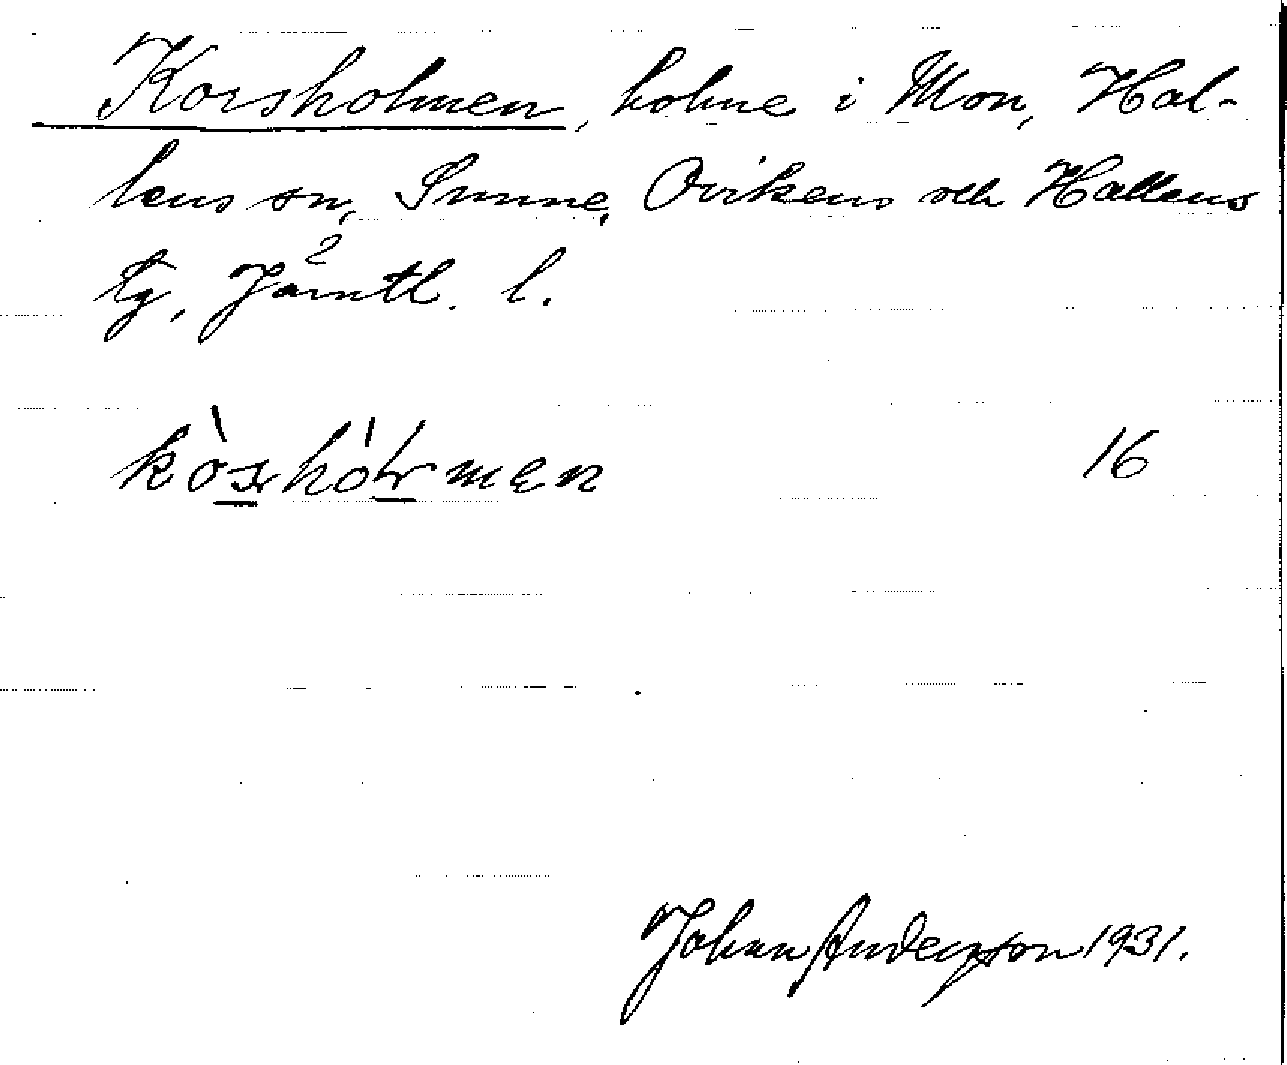 Korsholmen, holme i Mon, Hal-
lens sn, Sunne, Ovikens och Hallens
tg, Jämtl. l.
16
Johan Anderson 1931.